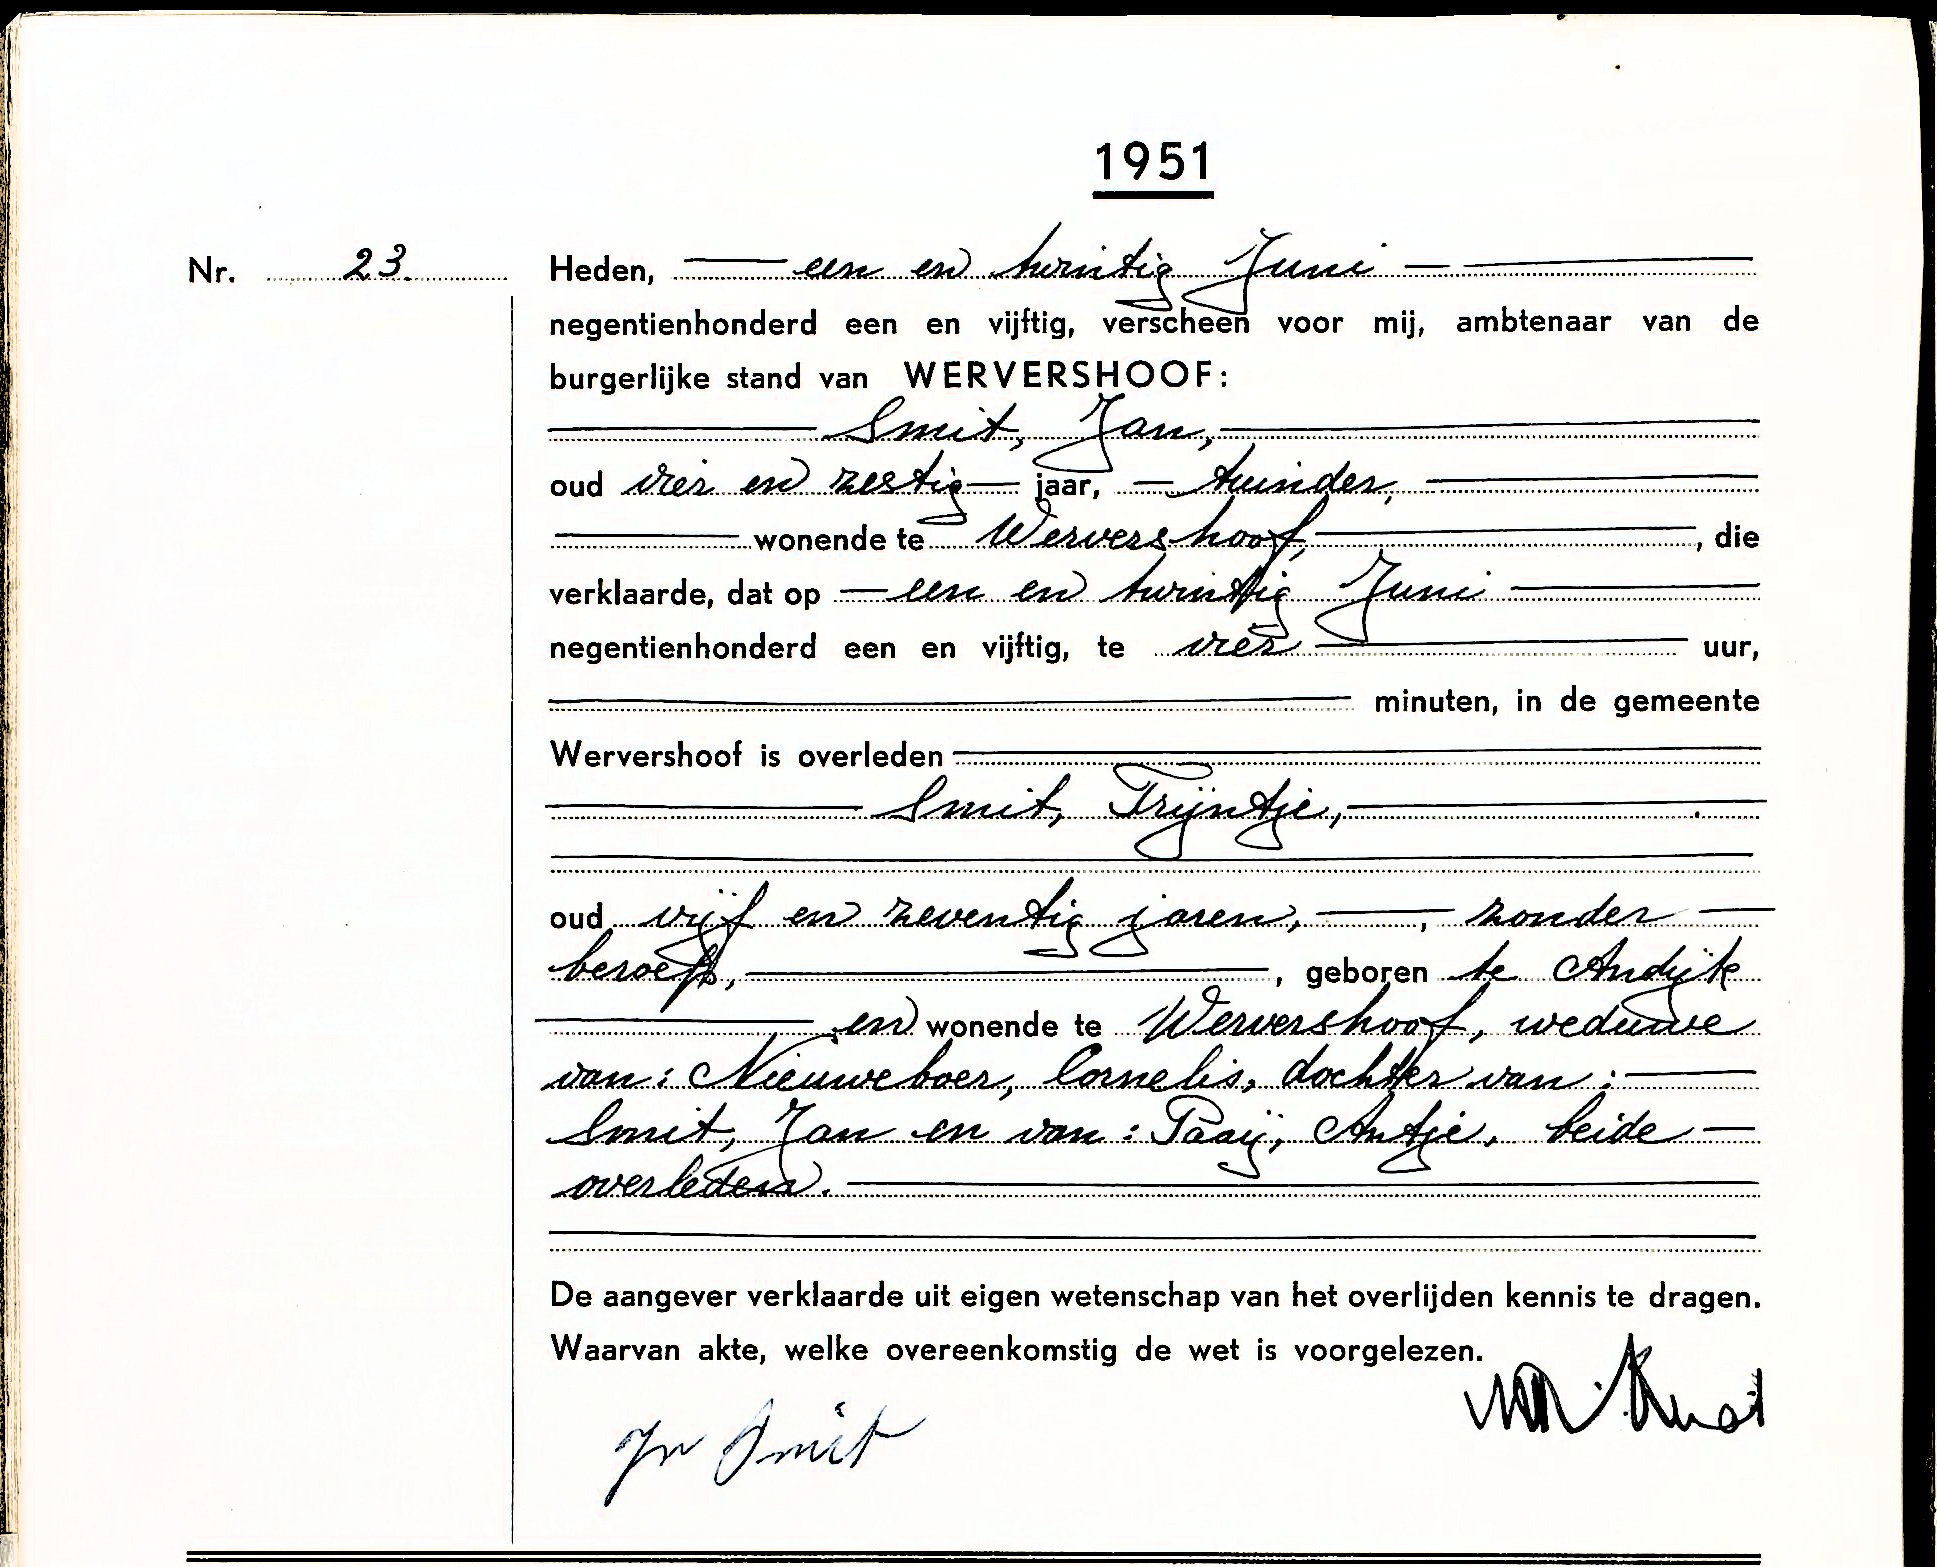 1951
Nr. 23. Heden, een en twintig Juni
negentienhonderd een en vijftig, verscheen voor mij, ambtenaar van de
burgerlijke stand van WERVERSHOOF:
Smit, Jan,
oud vier en zestig jaar, tuinder,
wonende te Wervershoof, , die
verklaarde, dat op een en twintig Juni
negentienhonderd een en vijftig, te vier uur,
minuten, in de gemeente
Wervershoof is overleden
Smit, Trijntje,
oud vijf en zeventig jaren, , zonder
beroep, , geboren te Andijk
en wonende te Wervershoof, weduwe
van: Nieuweboer, Cornelis, dochter van:
Smit, Jan en van: Paaij, Antje, beide
overleden.
De aangever verklaarde uit eigen wetenschap van het overlijden kennis te dragen.
Waarvan akte, welke overeenkomstig de wet is voorgelezen.
Jn Smit